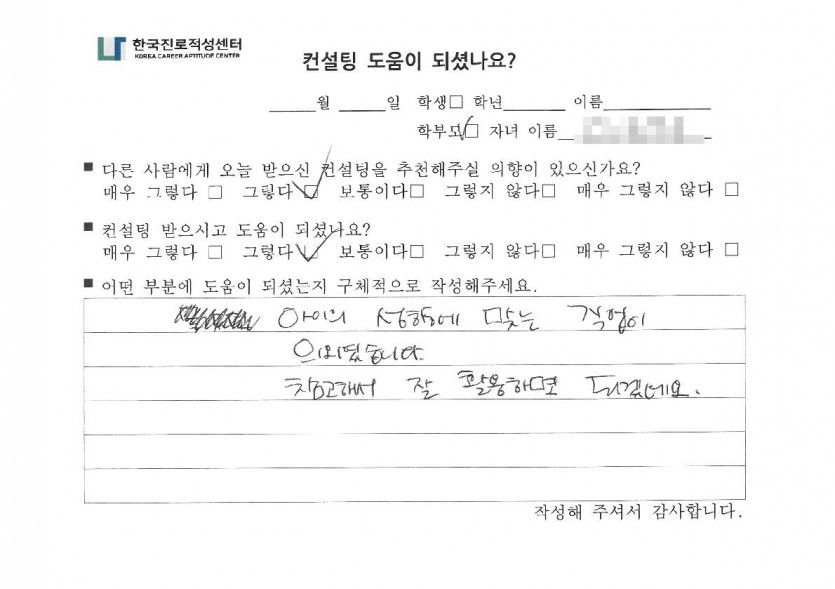 한국진로적성센터
KOREA CAREER APTITUDE CENTER
컨설팅 도움이 되셨나요?
_____월 _____일 학생□ 학년_______ 이름____________
학부모□ 자녀 이름
■ 다른 사람에게 오늘 받으신 컨설팅을 추천해주실 의향이 있으신가요?
매우 그렇다 □ 그렇다 □ 보통이다□ 그렇지 않다□ 매우 그렇지 않다 □
■ 컨설팅 받으시고 도움이 되셨나요?
매우 그렇다 □ 그렇다 □ 보통이다□ 그렇지 않다□ 매우 그렇지 않다 □
■ 어떤 부분에 도움이 되셨는지 구체적으로 작성해주세요.
아이의 성향에 맞는 직업이
의외였습니다.
참고해서 잘 활용하면 되겠네요.
작성해 주셔서 감사합니다.